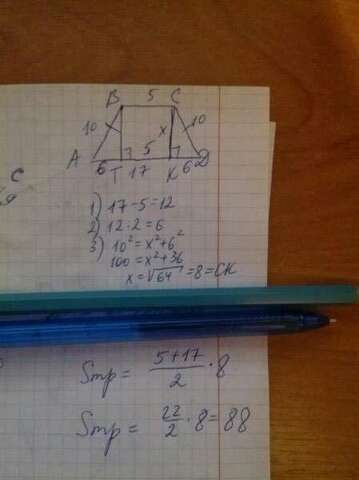 5
B C
10 x 10
5
A 6 T 17 K 6 D
C
1) 17-5=12
2) 12:2=6
3) 10²=x²+6²
100=x²+36
x=√64=8=CK
Sтр= 5+17/2 · 8
Sтр= 22/2 · 8=88